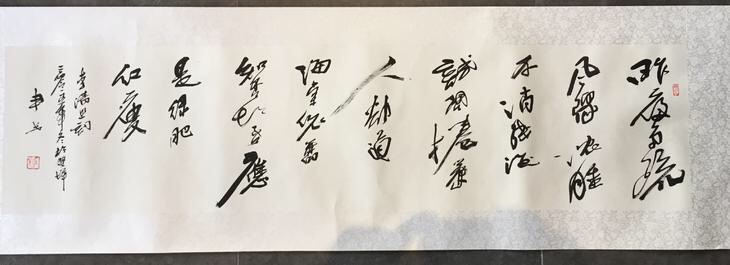 昨夜雨疏
风骤浓睡
不消残酒
試问捲簾
人却道
海棠依舊
知否知否應
是绿肥
红瘦
李清照词